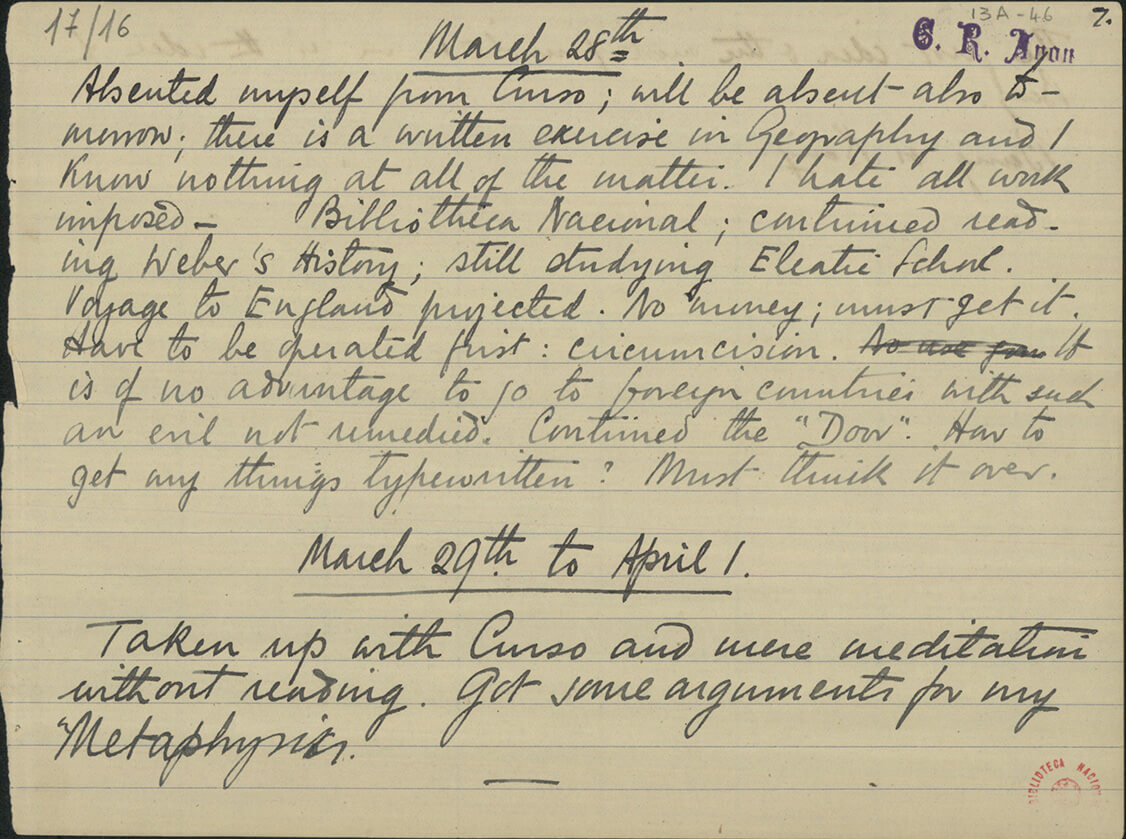 17/16
13A-46
7.
March 28th
C. R. Anon
Absented myself from Curso; will be absent also to-
morrow; there is a written exercise in Geography and I
Know nothing at all of the matter. I hate all work
imposed — Bibliotheca Nacional; continued read-
ing Weber's History; still studying Eleatic School.
Voyage to England projected. No money; must get it.
Have to be operated first: circumcision. No use It
is of no advantage to go to foreign countries with such
an evil not remedied. Continued the "Door". How to
get my things typewritten? Must think it over.
March 29th to April 1.
Taken up with Curso and mere meditation
without reading. Got some arguments for my
"Metaphysics.
BIBLIOTECA NACIO